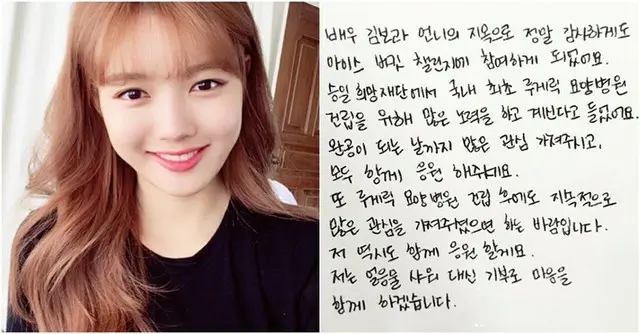 배우 김보라 언니의 지목으로 정말 감사하게도
아이스 버킷 챌린지에 참여하게 되었어요.
승일 희망재단에서 국내 최초 루게릭 요양병원
건립을 위해 많은 노력을 하고 계신다고 들었어요.
완공이 되는 날까지 많은 관심 가져주시고,
모두 함께 응원 해주세요.
또 루게릭 요양병원 건립 후에도 지속적으로
많은 관심을 가져주셨으면 하는 바람입니다.
저 역시도 함께 응원 할게요.
저는 얼음물 샤워 대신 기부로 마음을
함께 하겠습니다.